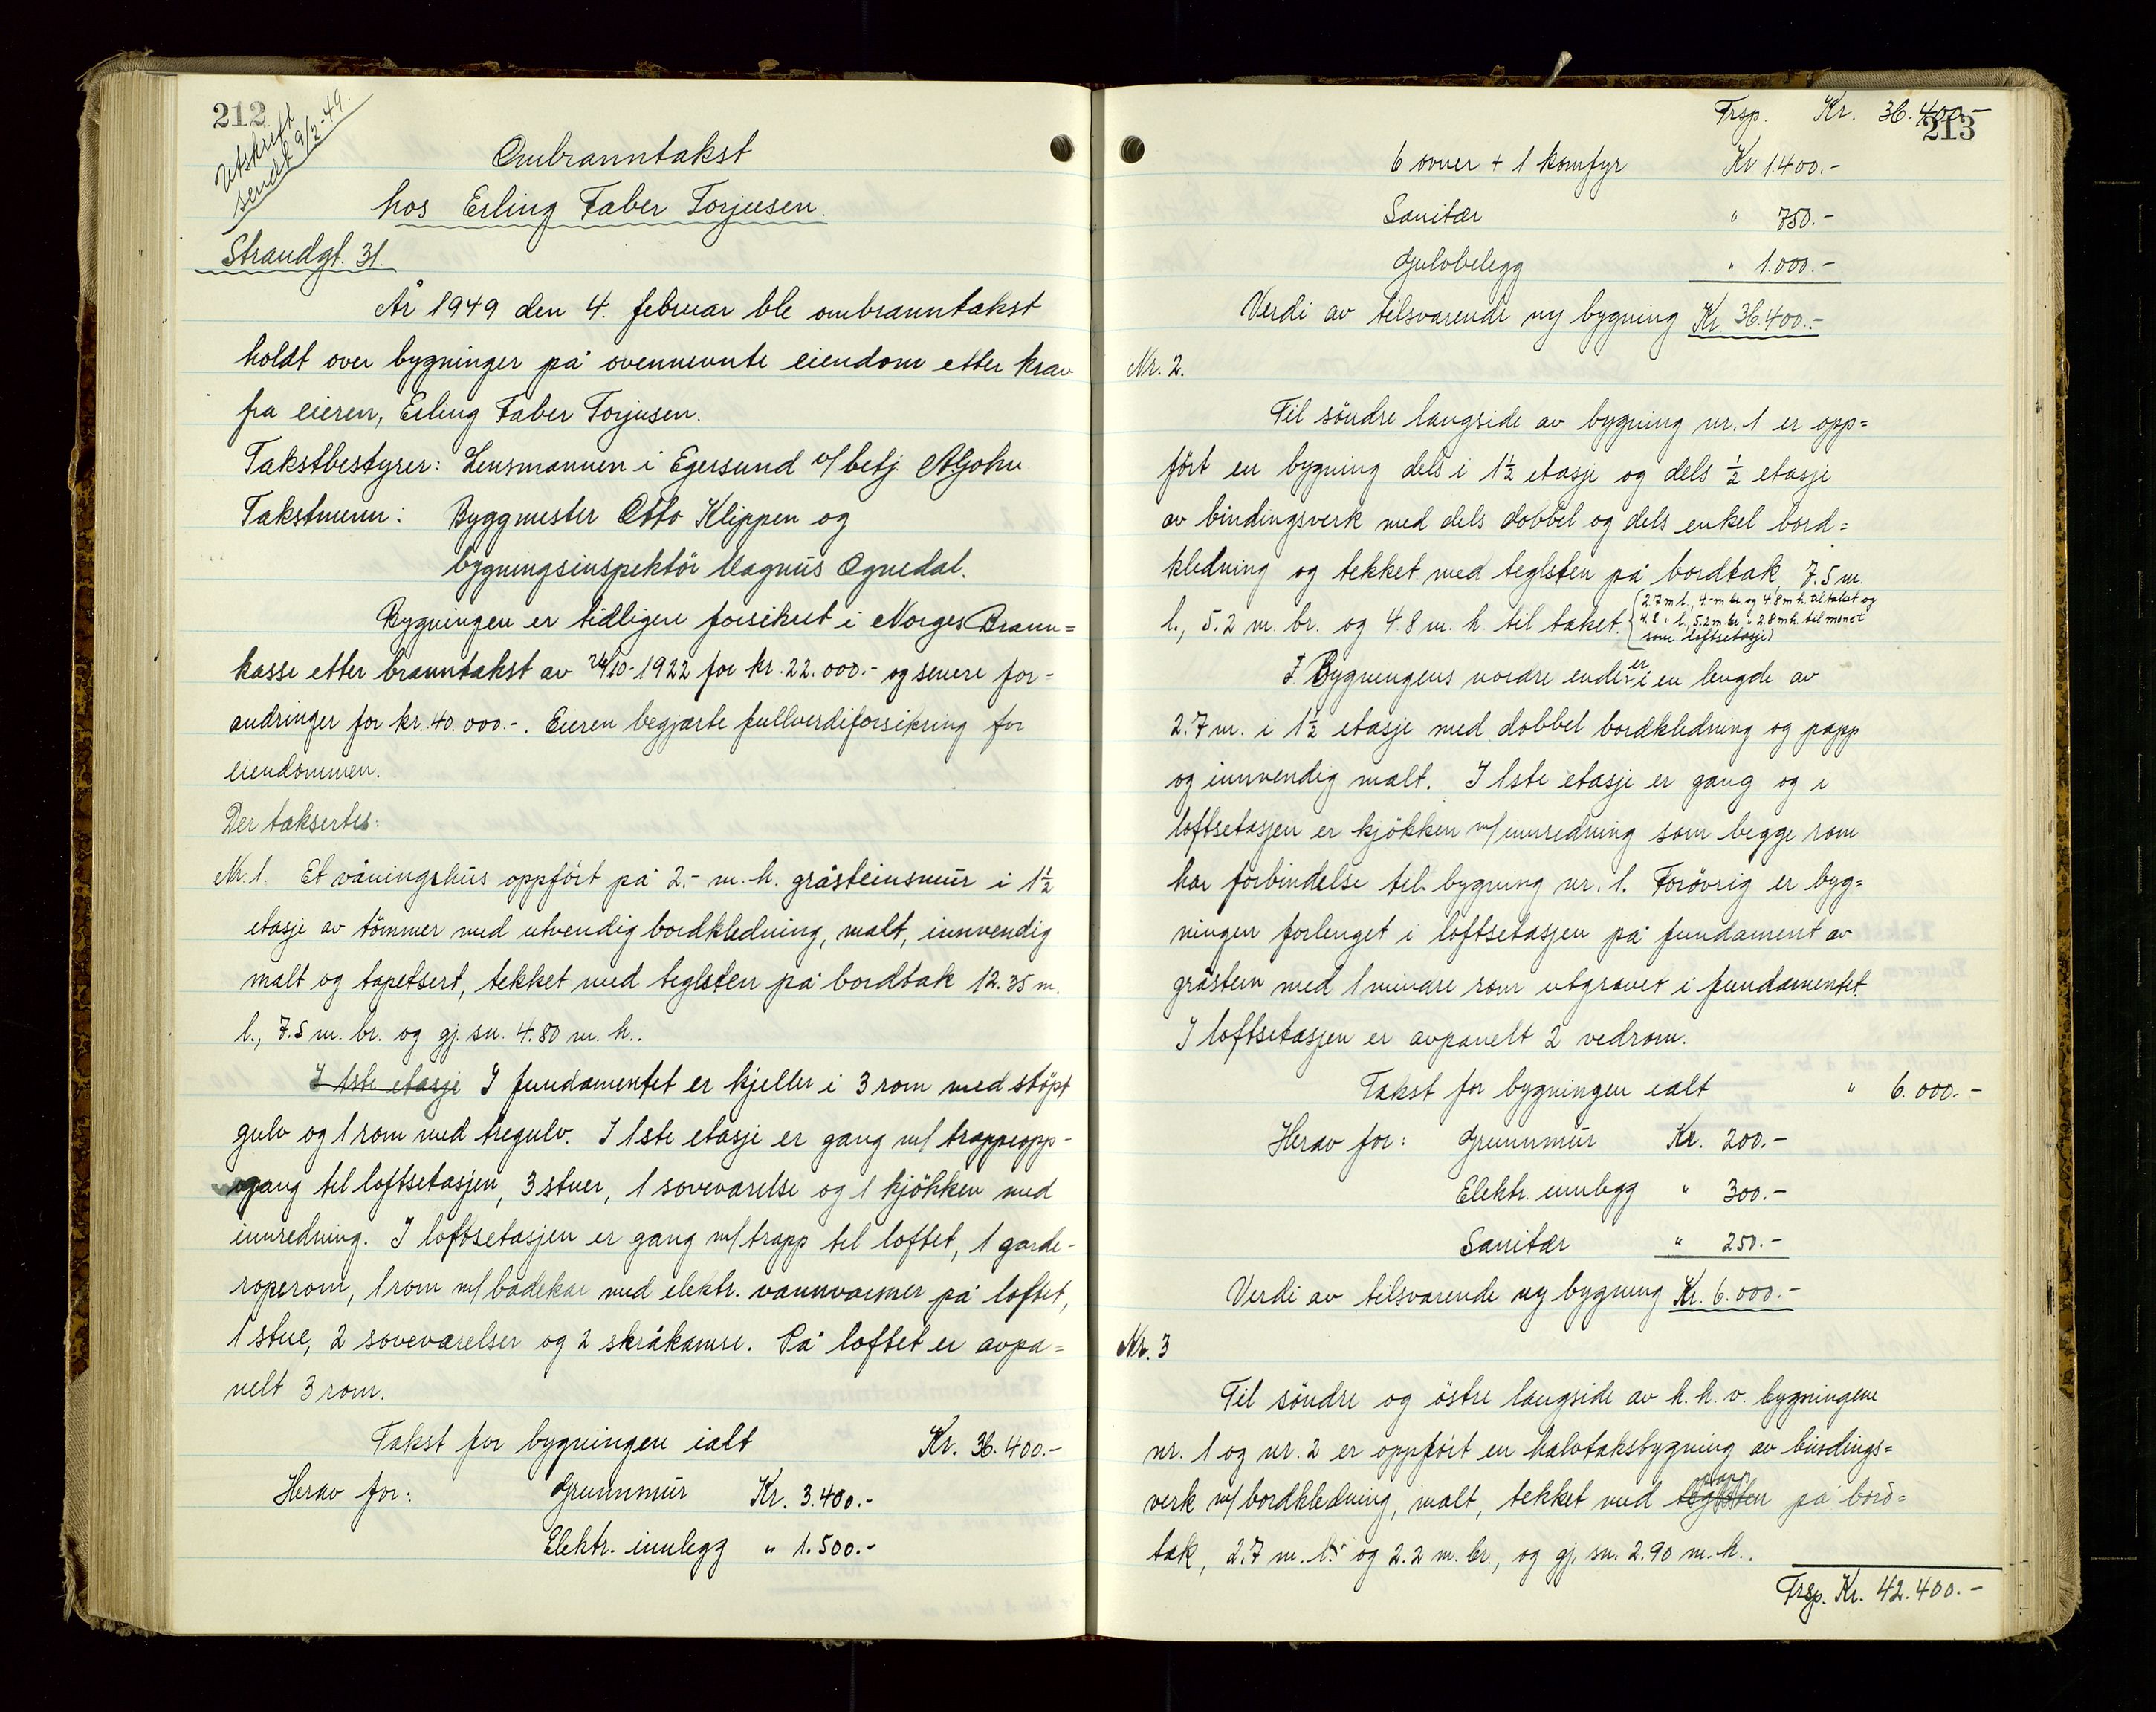 212
Utskrift
sendt 9/2-49.
Ombranntakst
hos Erling Faber Torjusen.
Strandgt. 31.
År 1949 den 4. februar ble ombranntakst
holdt over bygninger på ovennevnte eiendom etter krav
fra eieren, Erling Faber Torjusen.
Takstbestyrer: Lensmannen i Egersund v/ betj.
Takstmenn: Byggmester Otto Klippen og
bygningsinspektör Magnus Ognedal.
Bygningen er tidligere forsikret i Norges Brann=
kasse etter branntakst av 24/10-1922 for kr. 22.000.- og senere for-
andringer for kr. 40.000.-. Eieren begjærte fullverdiforsikring for
eiendommen.
Der taksertes:
Nr. 1. Et våningshus oppfört på 2.- m. h. gråsteinsmur i 1½
etasje av tömmer med utvendig bordkledning, malt, innvendig
malt og tapetsert, tekket med teglsten på bordtak 12.35 m.
l., 7.5 m. br. og gj. sn. 4.80 m. h..
I 1ste etasje I fundamentet er kjeller i 3 rom med stöpt
gulv og 1 rom med tregulv. I 1ste etasje er gang m/ trappeopp-
gang til loftsetasjen, 3 stuer, 1 soveværelse og 1 kjökken med
innredning. I loftsetasjen er gang m/ trapp til loftet, 1 garde-
roperom, 1 rom m/ badekar med elektr. vannvarmer på loftet,
1 stue, 2 soveværelser og 2 skråkamre. På loftet er avpa=
nelt 3 rom.
Takst for bygningen ialt Kr. 36.400.-
Herav for: Grunnmur Kr. 3.400.-
Elektr. innlegg " 1.500.-
213
Trsp. Kr. 36.400.-
6 ovner + 1 komfyr Kr 1.400.-
Sanitær " 750.-
Gulvbelegg " 1.000.-
Verdi av tilsvarende ny bygning Kr 36.400.-
Nr. 2.
Til söndre langside av bygning nr. 1 er opp=
fört en bygning dels i 1½ etasje og dels ½ etasje
av bindingsverk med dels dobbel og dels enkel bord=
kledning og tekket med teglsten på bordtak, 7.5 m.
l., 5.2 m. br. og 4.8 m. h. til taket. (2.7 m l., 4.- m br. og 4.8 m h. til taket og
4.8 " l., 5.2 m br. " 2.8 m h. til mönet
som loftsetasje)
I Bygningens nordre ende er i en lengde av
2.7 m. i 1½ etasje med dobbel bordkledning og papp
og innvendig malt. I 1ste etasje er gang og i
loftsetasjen er kjökken m/ innredning som begge rom
har forbindelse til bygning nr. 1. Forövrig er byg=
ningen forlenget i loftsetasjen på fundament av
gråsten med 1 mindre rom utgravet i fundamentet.
I loftsetasjen er avpanelt 2 vedrom.
Takst for bygningen ialt " 6.000.-
Herav for: Grunnmur Kr. 200.-
Elektr. innlegg " 300.-
Sanitær " 250.-
Verdi av tilsvarende ny bygning Kr. 6.000.-
Nr. 3
Til söndre og östre langside av h. h. v. bygningene
nr. 1 og nr. 2 er oppfört en halvtaksbygning av bindings=
verk m/ bordkledning, malt, tekket med teglsten papp på bord=
tak, 2.7 m. l. og 2.2 m. br., og gj. sn. 2.90 m. h..
Trsp. Kr. 42.400.-